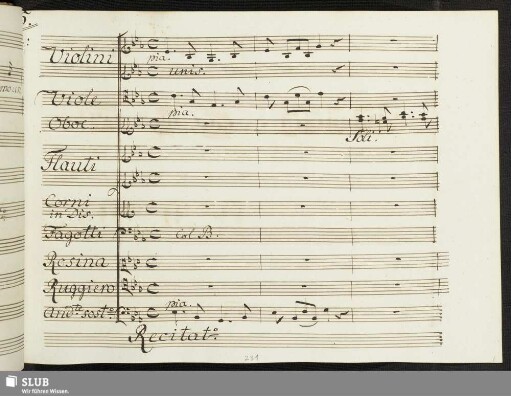 Violini
pia.
unis.
Viole
pia.
Oboe.
Soli
Flauti
Corni
in Dis.
Fagotti
Col B.
Rosina
Ruggiero
pia.
And.te sost.o
Recitat.o
231
SLUB
Wir führen Wissen.